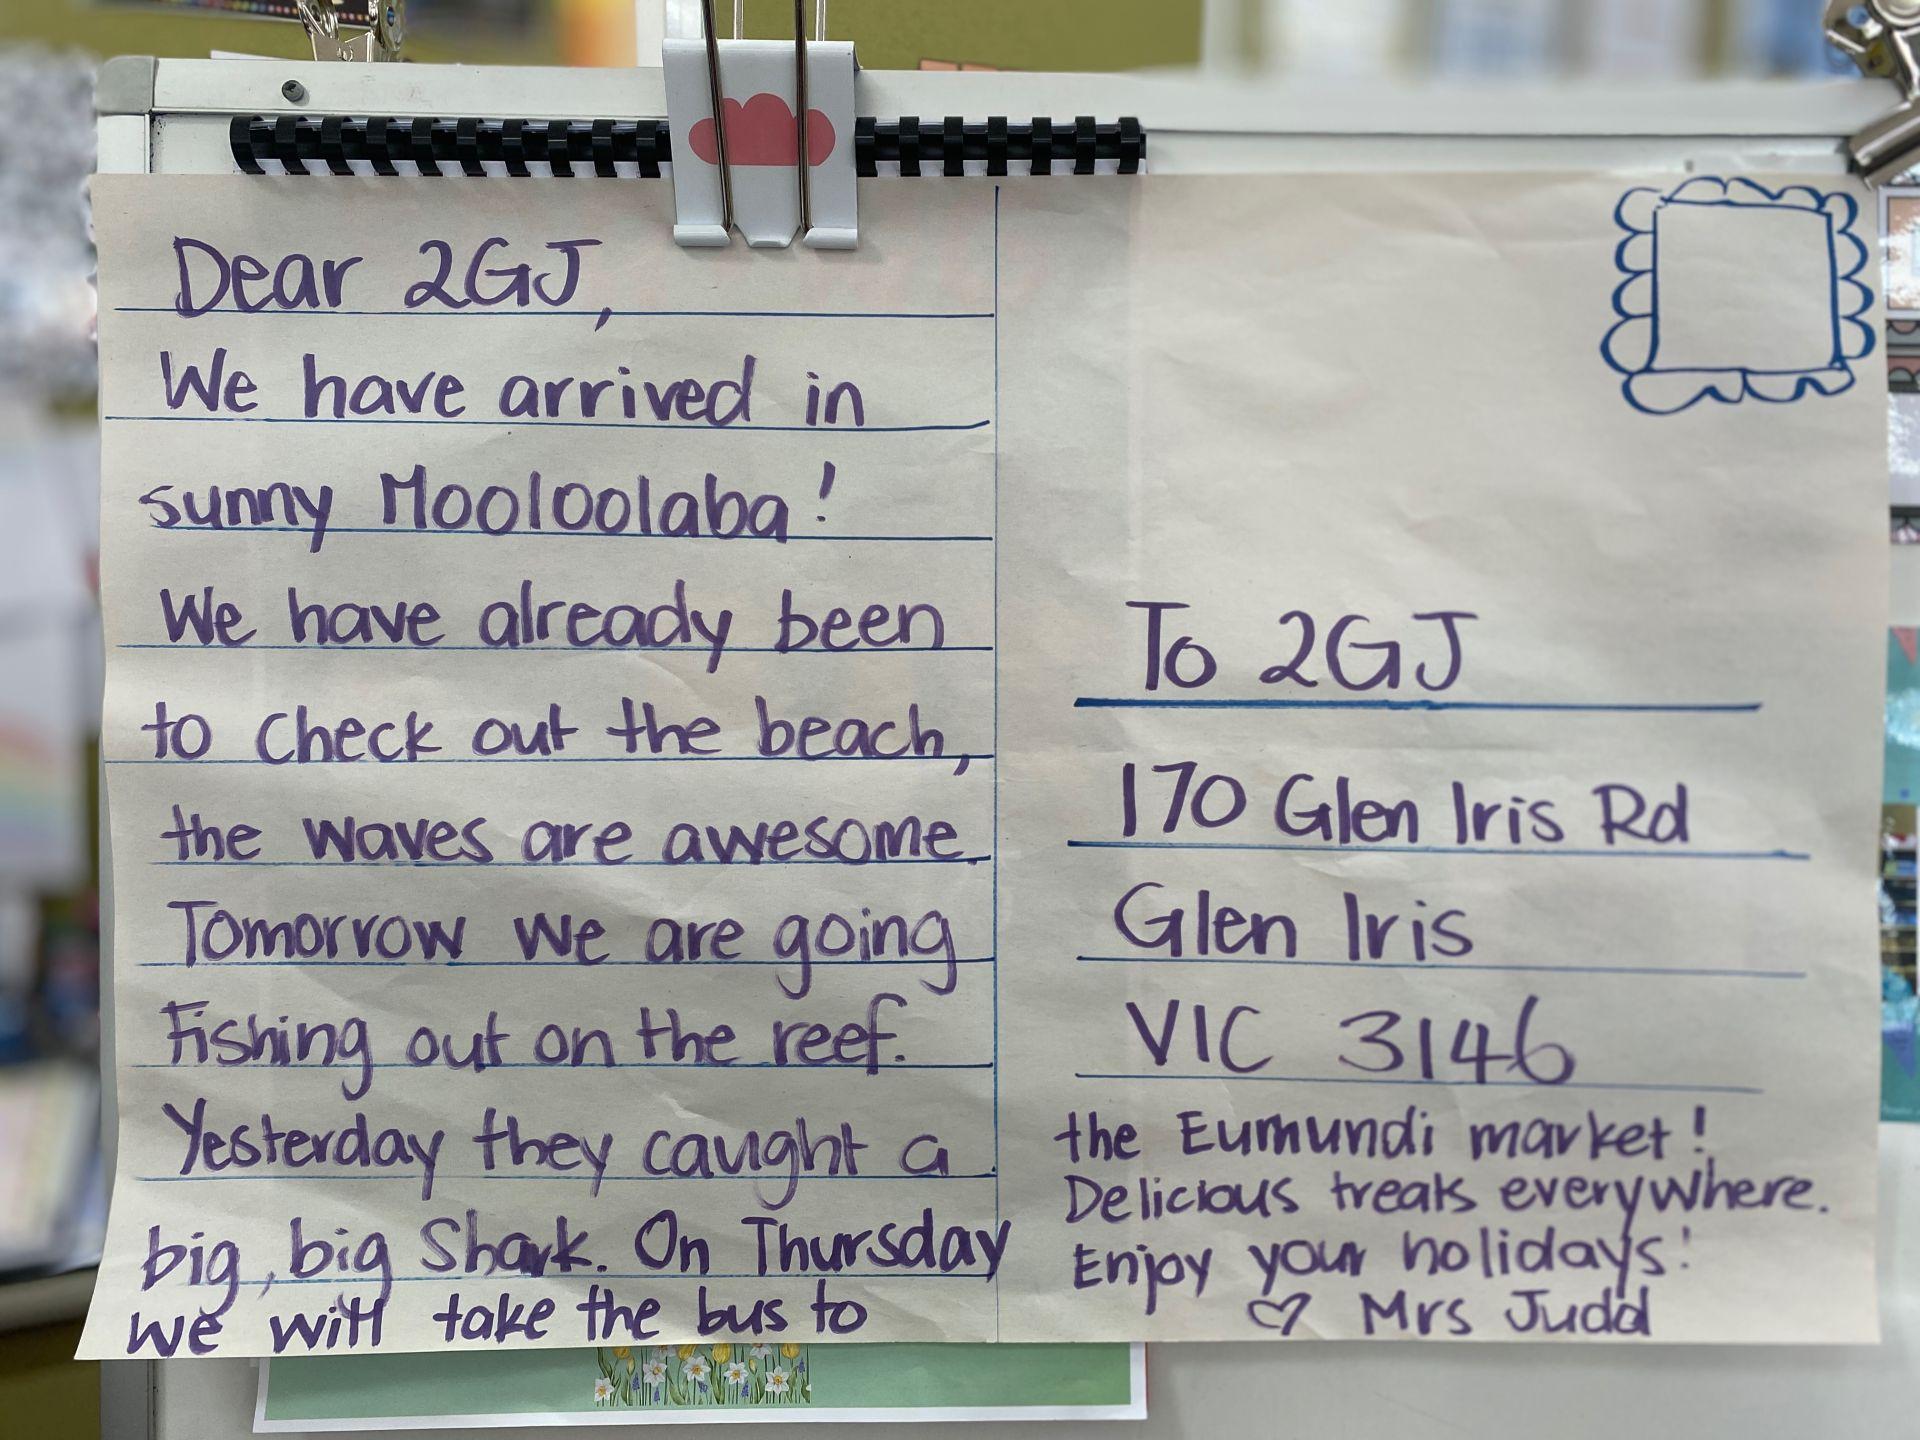 Dear 2GJ,
We have arrived in
sunny Mooloolaba!
We have already been
to check out the beach,
the waves are awesome.
Tomorrow we are going
Fishing out on the reef.
Yesterday they caught a
big, big Shark. On Thursday
we will take the bus to
To 2GJ
170 Glen Iris Rd
Glen Iris
VIC 3146
the Eumundi market!
Delicious treats everywhere.
Enjoy your holidays!
♡ Mrs Judd